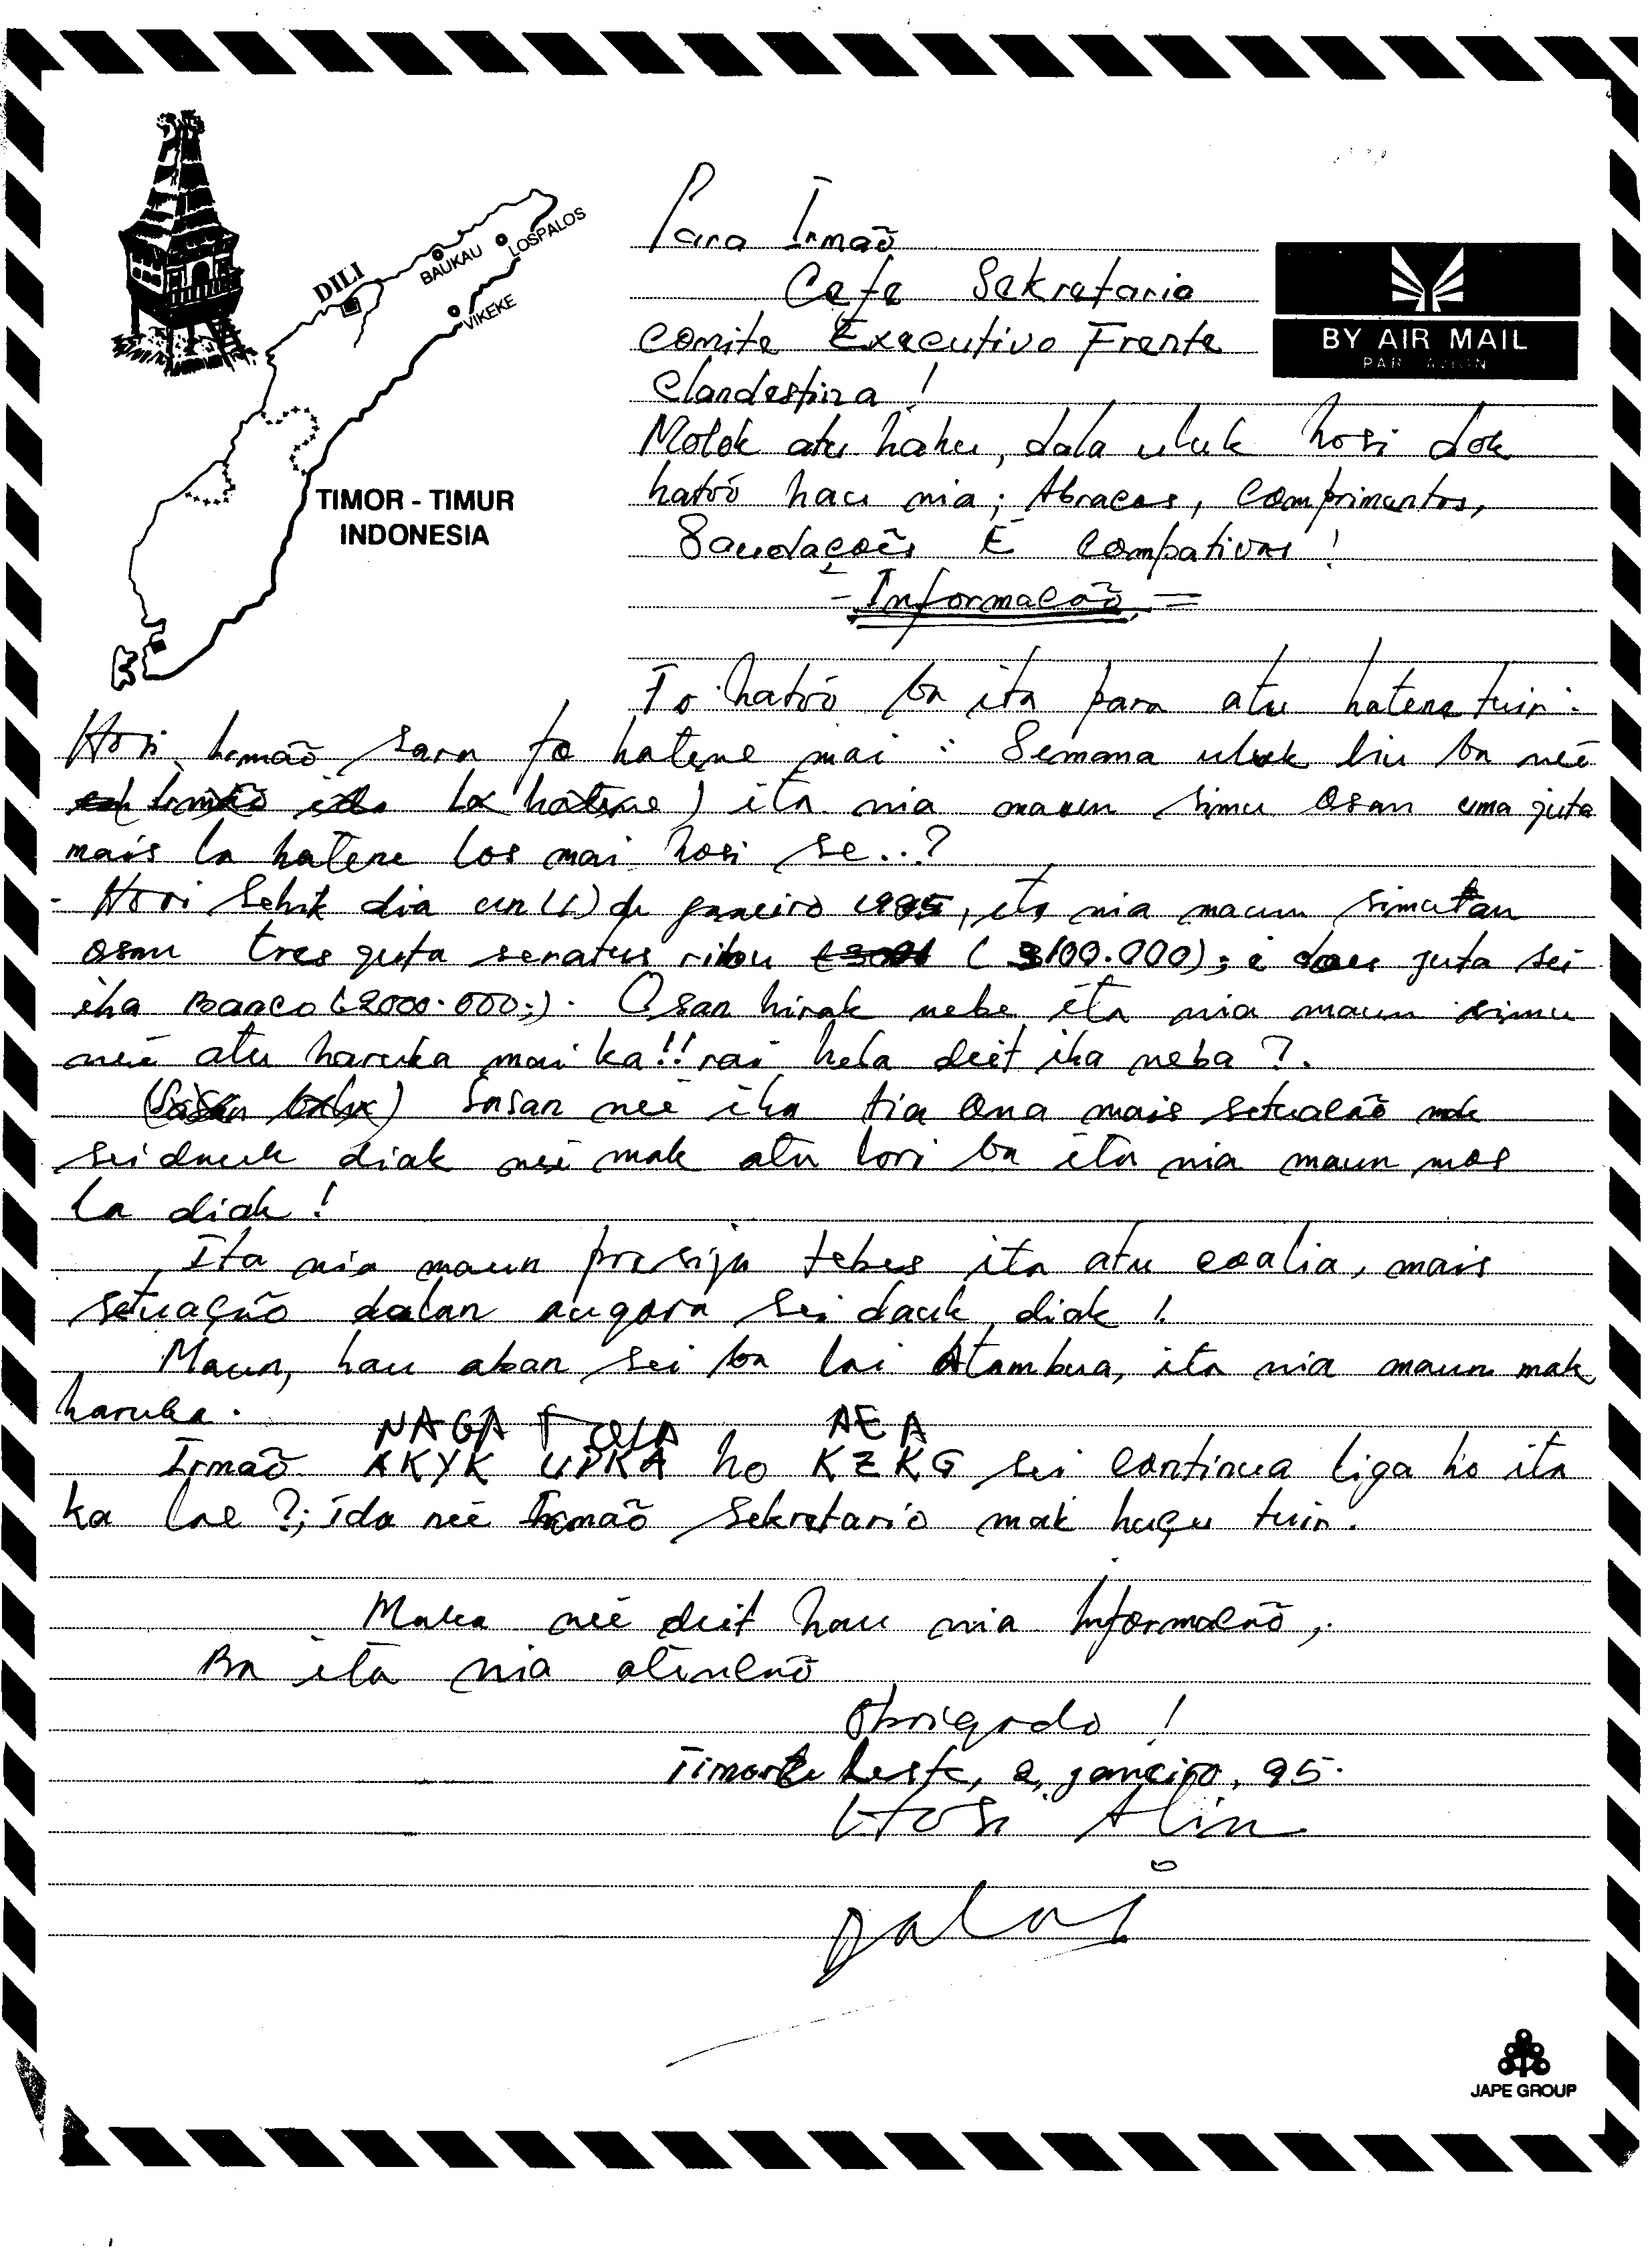 DILI
BAUKAU
LOSPALOS
VIKEKE
TIMOR - TIMUR
INDONESIA
BY AIR MAIL
PAR AVION
Para Irmaõ
Cefe Sekretario
Comite Executivo Frente
Clandestina !
Molok atu hahu, dala uluk hosi dok
hatóo hau nia ; Abraços, Comprimentos,
Saudaçoẽs E Compativas !
- Informacaõ =
To hatóo ba ita para atu hatene tuir :
Hosi Irmaõ sara fo hatene mai : Semana uluk liu ba neé
la hatene ) ita nia maun simu Osan uma juta
mais la hatene los mai hosi se..?
- Hori Sehik dia un (1) de janeiro 1995, ita nia maun simutan
osan tres juta senatus ribu ( 3100.000); e doui juta sei
iha Banco (2000.000;). Osan hirak nebe ita nia maun simu
neé atu haruka mai ka!! rai hela deit iha neba ?.
Sasan neé iha tia Ona mais setuacaõ mak
sei dauk diak neé mak atu lori ba ita nia maun mos
la diak !
Ita nia maun presija tebes ita atu coalia, mais
setuaçaõ dalan augora sei dauk diak !
Maun, hau aban sei ba lai Atambua, ita nia maun mak
haruka.
NAGA AEA
Irmaõ AKYK UPKA ho KZKG sei continua liga ho ita
ka lae ?; ida neé Irmaõ Sekretario mak huçu tuir.
Maka neé deit hau nia Informacaõ,.
Ba ita nia atencaõ
Obrigado !
Timor Leste, 2, janeiro, 95.
Hosi Alin
JAPE GROUP